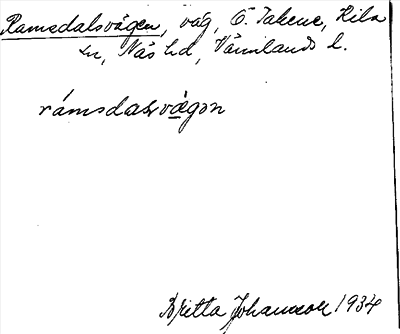 Ramsdalsvägen, väg, Ö. Takene, Kila
sn, Näs hd, Värmlands l.
rámsdalsvä̀gən
Britta Johansson 1934